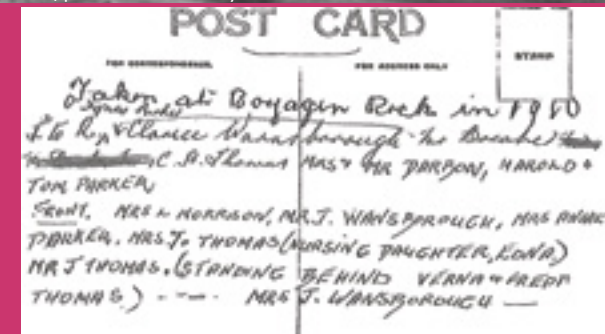 POST CARD
FOR CORRESPONDENCE.
FOR ADDRESS ONLY
STAMP
Taken at Boyagin Rock in 1910
L to R, & Clance Wansborough
C. A. Thomas MRS & MR DARBON, HAROLD &
TOM PARKER,
FRONT. MRS L MORRISON, MR J. WANSBOROUGH, MRS ANNIE
PARKER. MRS J. THOMAS (NURSING DAUGHTER, EDNA)
MR J THOMAS. (STANDING BEHIND VERNA & FREDA
THOMAS) ---- MRS J. WANSBOROUGH —